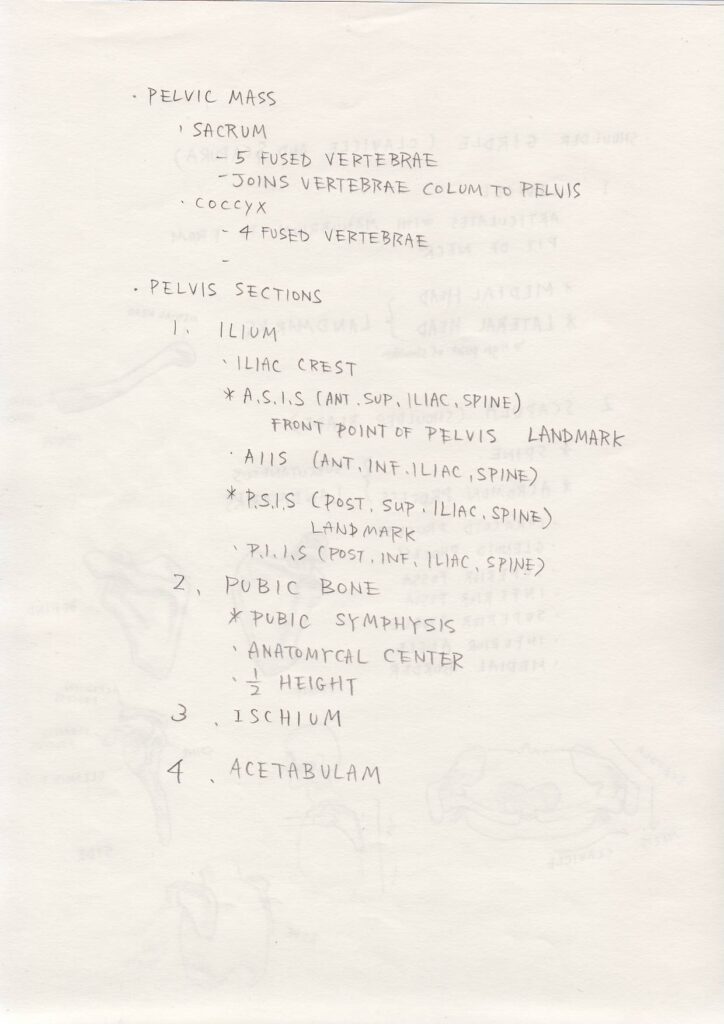 · PELVIC MASS
· SACRUM
- 5 FUSED VERTEBRAE
- JOINS VERTEBRAE COLUM TO PELVIS
· COCCYX
- 4 FUSED VERTEBRAE
-
· PELVIS SECTIONS
1. ILIUM
· ILIAC CREST
* A.S.I.S (ANT. SUP. ILIAC, SPINE)
FRONT POINT OF PELVIS LANDMARK
· AIIS (ANT, INF. ILIAC, SPINE)
* P.S.I.S (POST, SUP. ILIAC, SPINE)
LANDMARK
· P.I.I.S (POST, INF, ILIAC, SPINE)
2. PUBIC BONE
* PUBIC SYMPHYSIS
· ANATOMYCAL CENTER
· 1/2 HEIGHT
3. ISCHIUM
4. ACETABULAM